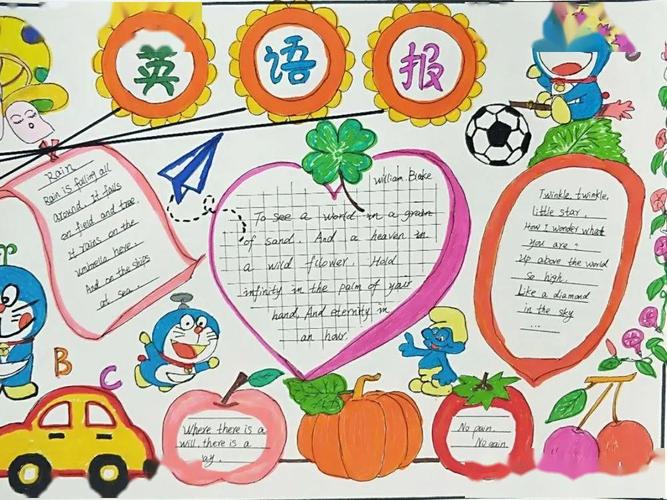 英语报
Rain
Rain is falling all
around, It falls
on field and tree,
it rains on the
umbrella here.
And on the ships
at sea.
William Blake
To see a world in a grain
of sand. And a heaven in
a wild flower. Hold
infinity in the palm of your
hand, And eternity in
an hour.
Twinkle, twinkle,
little star.
How I wonder what
you are?
Up above the world
so high.
Like a diamond
in the sky
...
B
C
Where there is a
will, there is a
way.
No pain.
No gain.